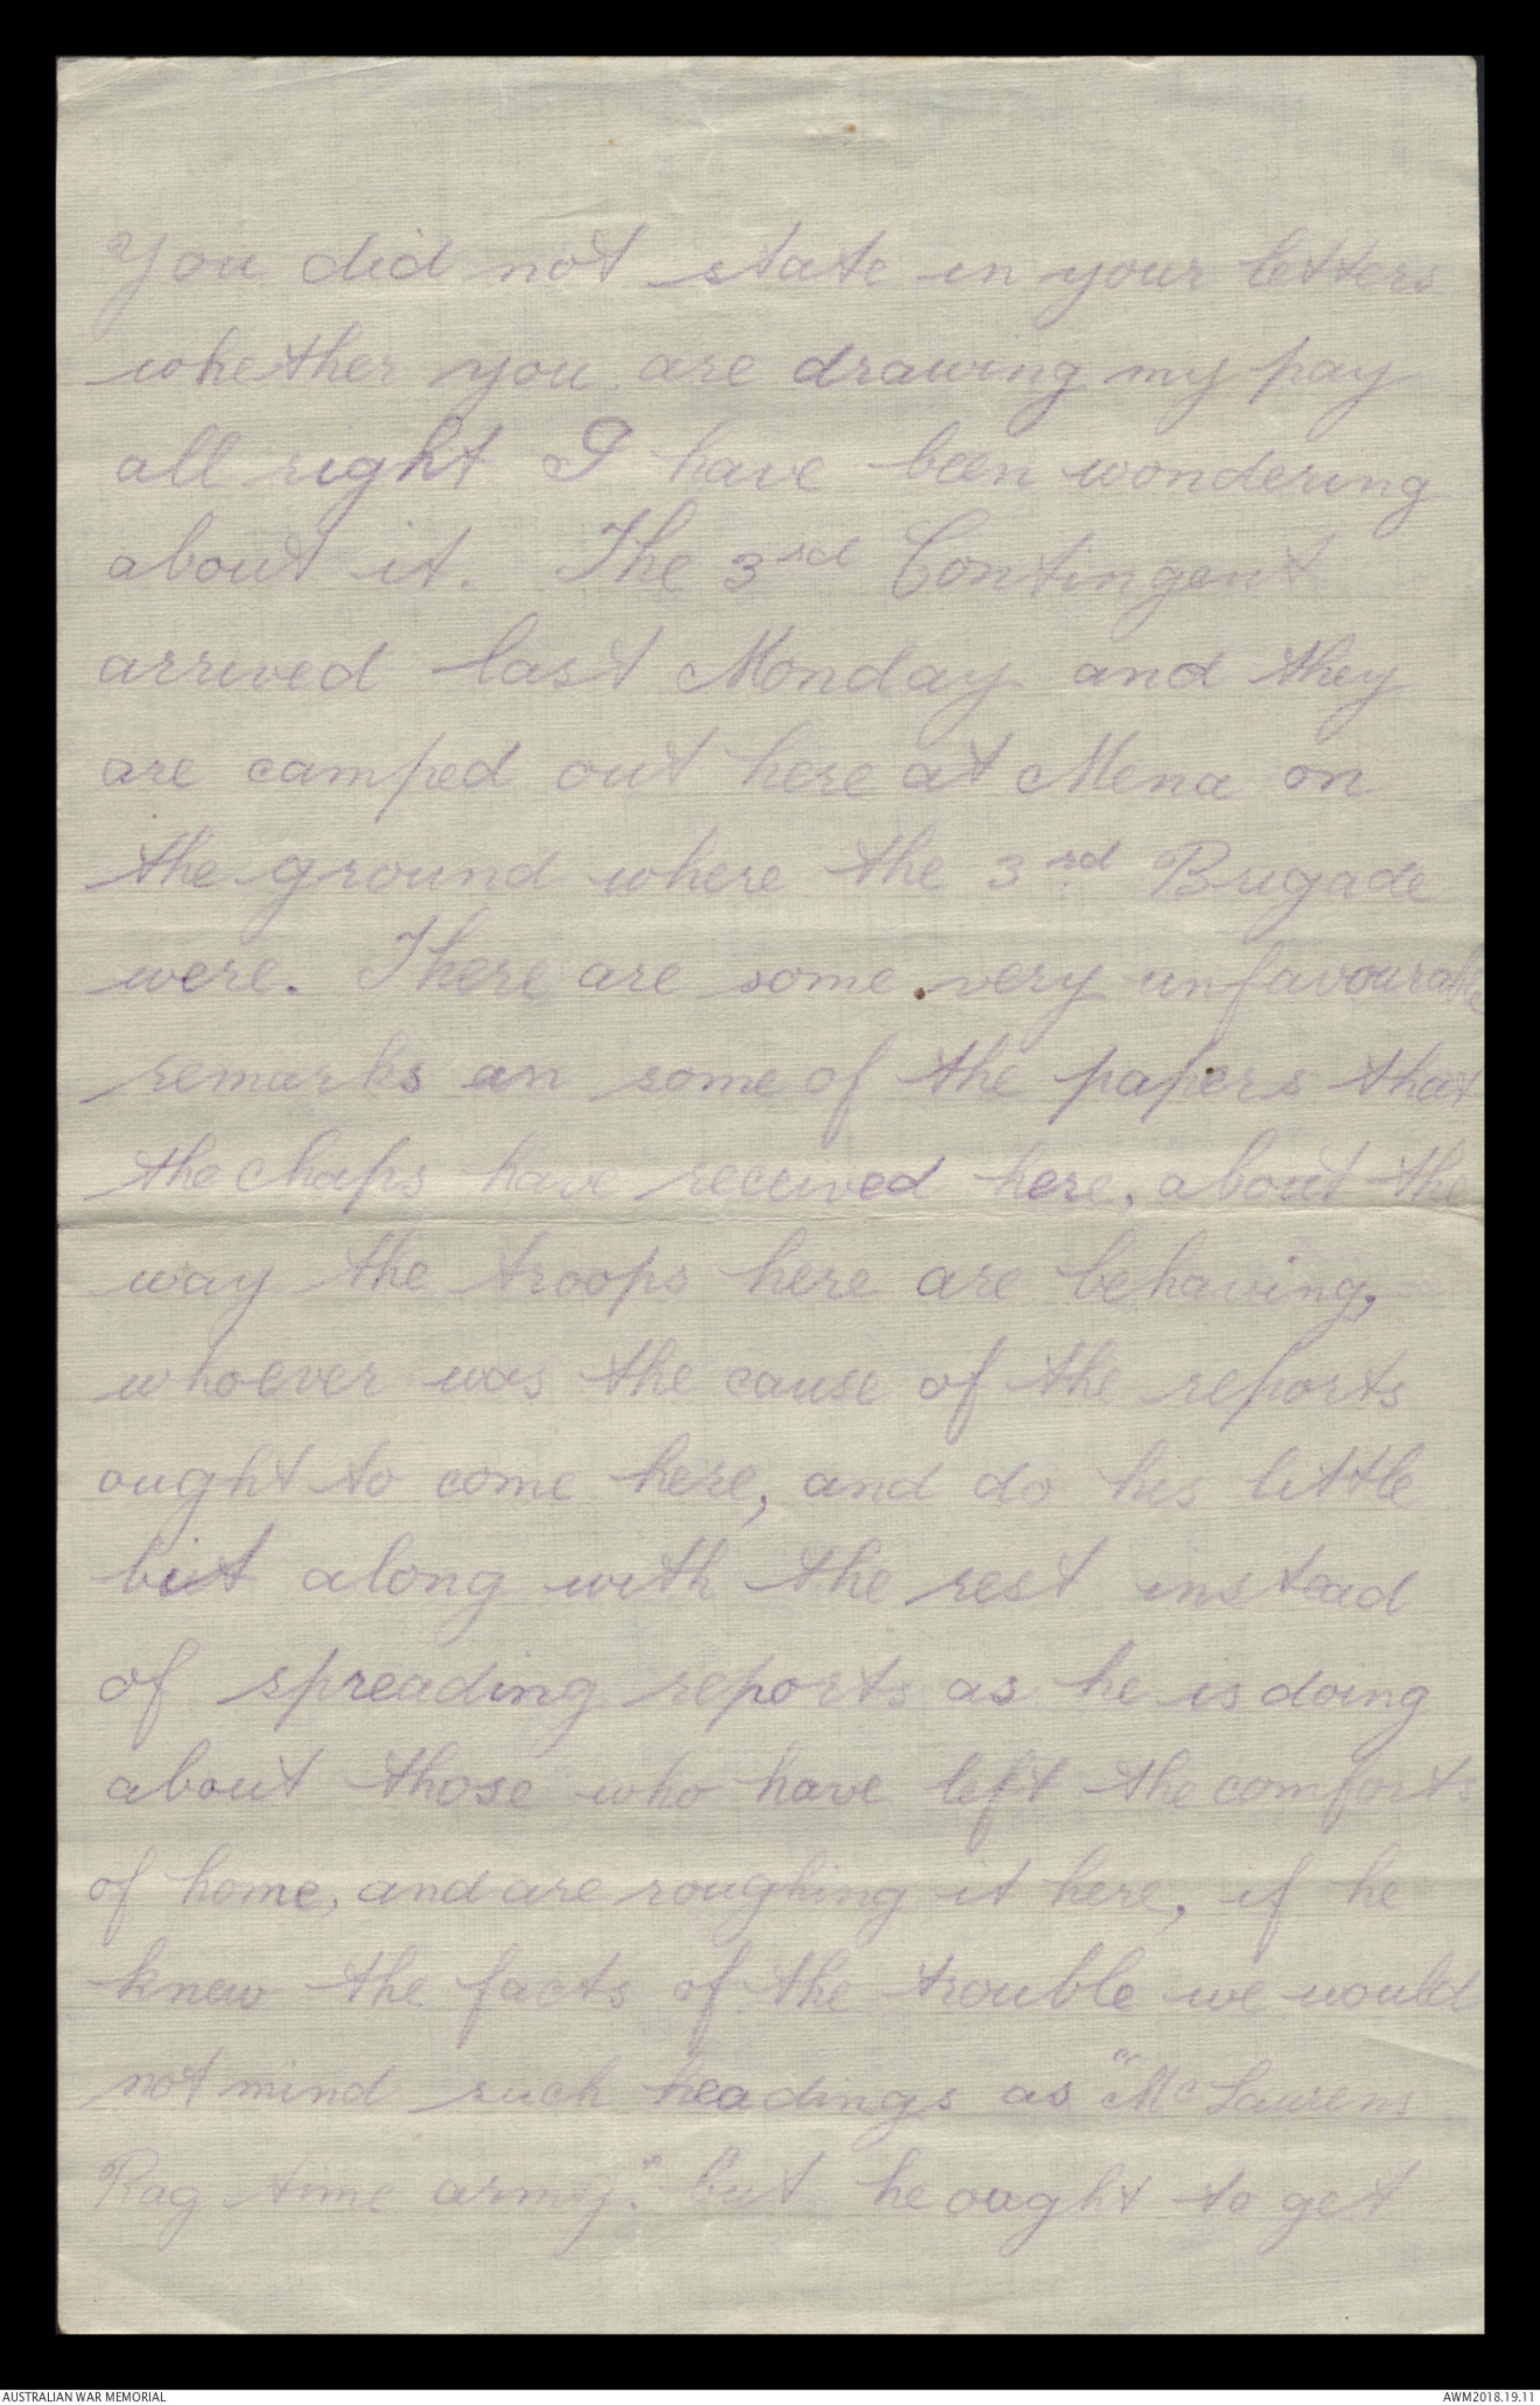 You did not state in your letters
whether you are drawing my pay
all right I have been wondering
about it. The 3rd Contingent
arrived last Monday and they
are camped out here at Mena on
the ground where the 3rd Brigade
were. There are some very unfavourable
remarks an some of the papers that
the chaps have received here, about the
way the troops here are behaving,
whoever was the cause of the reports
ought to come here, and do his little
bit along with the rest instead
of spreading reports as he is doing
about those who have left the comforts
of home, and are roughing it here, if he
knew the facts of the trouble we would
not mind such headings as "McLaurens
Rag time army." but he ought to get
AUSTRALIAN WAR MEMORIAL
AWM2018.19.11